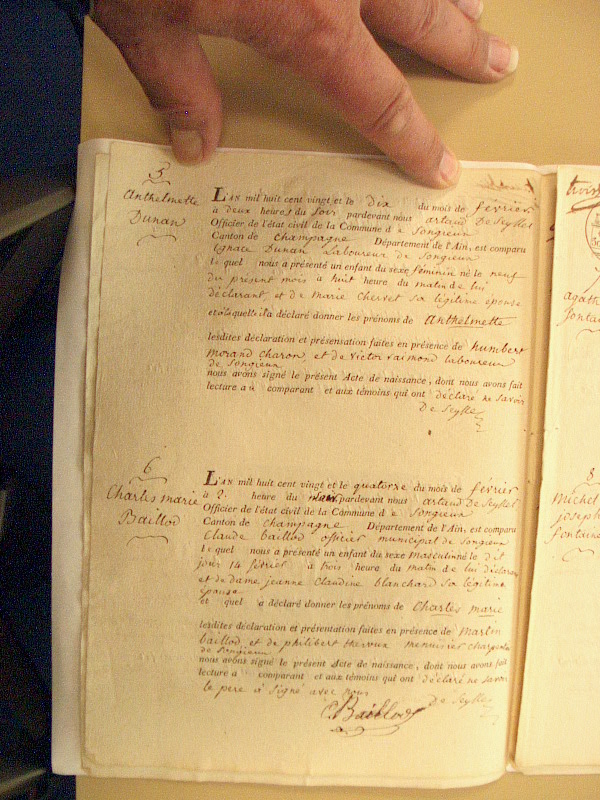 5
Anthelmette
Dunan
L'AN mil huit cent vingt et le dix du mois de février
à deux heures du soir pardevant nous artaud De Seyssel
Officier de l'état civil de la Commune de Songieux
Canton de champagne Département de l'Ain, est comparu
Ignace Dunan Laboureur de Songieux
le quel nous a présenté un enfant du sexe féminin né le neuf
du présent mois à huit heure du matin de lui
déclarant, et de marie cherset sa légitime épouse
et a déclaré donner les prénoms de Anthelmette
lesdites déclaration et présensation faites en présence de humbert
morand charon, et de victor raimond laboureur
de Songieux
nous avons signé le présent Acte de naissance, dont nous avons fait
lecture a comparant et aux témoins qui ont déclaré ne savoir
De Seyssel
6
Charles marie
Baillod
L'AN mil huit cent vingt et le quatorze du mois de février
à 2 heure du pardevant nous artaud De Seyssel
Officier de l'état civil de la Commune de Songieux
Canton de champagne Département de l'Ain, est comparu
Claude baillod officier municipal de Songieux
le quel nous a présenté un enfant du sexe masculin né le dit
jour 14 février à trois heure du matin de lui déclarant
et de dame jeanne Claudine blanchard sa légitime
épouse
et quel a déclaré donner les prénoms de Charles marie
lesdites déclaration et présentation faites en présence de Martin
baillod et de philibert heroux menuisier charpentier
de Songieux
nous avons signé le présent Acte de naissance, dont nous avons fait
lecture a comparant et aux témoins qui ont déclaré ne savoir
le pere a signé avec nous
De Seyssel
C Baillod
agath
fontai
8
Michel
joseph
fontaine